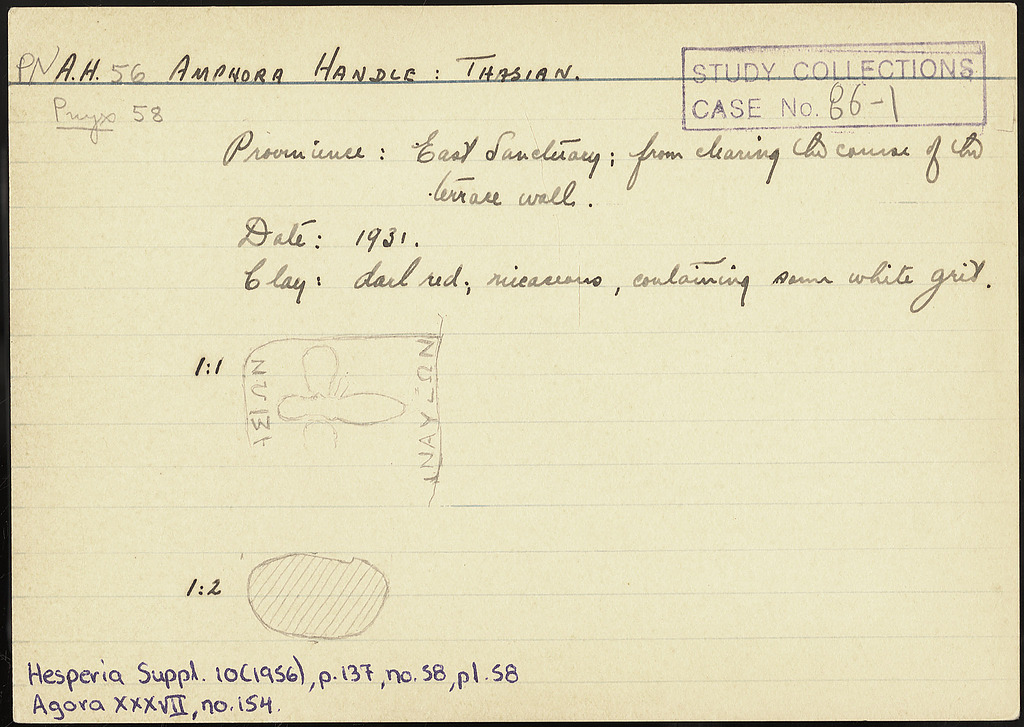 PN A.H. 56 AMPHORA HANDLE : THASIAN.
STUDY COLLECTIONS
CASE No. 86-1
Pnyx 58
Provenience : East Sanctuary; from clearing the course of the
terrace wall.
Date : 1931.
Clay : dark red; micaceous, containing some white grit.
1:1
ΣΙΩΝ
ΝΑΥΣΩΝ
1:2
Hesperia Suppl. 10(1956), p.137, no.58, pl.58
Agora XXXVII, no.154.